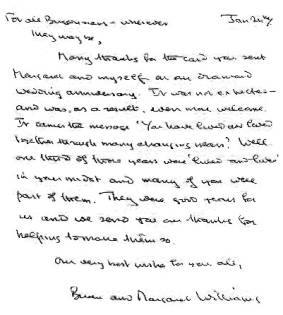 For all Brusonians – wherever Jan 24th
they may be,
Many thanks for the card you sent
Margaret and myself on our diamond
wedding anniversary. It was not expected –
and was, as a result, even more welcome.
It carries the message 'You have lived and loved
together through many changing years'. Well
one third of those years was 'lived and loved'
in your midst and many of you were
part of them. They were good years for
us and we send you our thanks for
helping to make them so.
Our very best wishes for you all,
and Margaret Williams